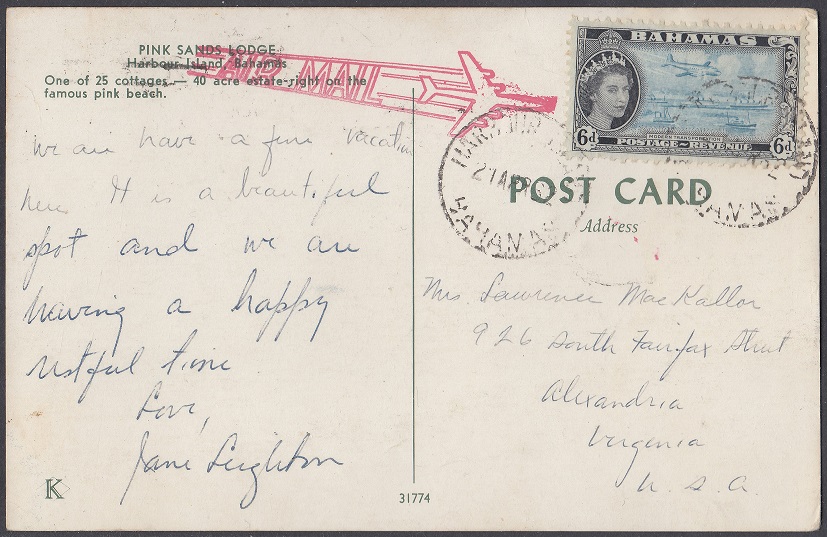 PINK SANDS LODGE
Harbour Island, Bahamas
One of 25 cottages — 40 acre estate-right on the
famous pink beach.
AIR MAIL
BAHAMAS
6d
6d
MODERN TRANSPORTATION
POSTAGE ~ REVENUE
HARBOUR
21 APR
BAHAMAS
BAHAMAS
POST CARD
Address
We are have a fine vacation
here It is a beautiful
spot and we are
having a happy
restful time
Love,
Jane Leighton
Mrs. Lawrence MacKallor
926 South Fairfax Street
Alexandria
Virginia
U. S. A.
K
31774